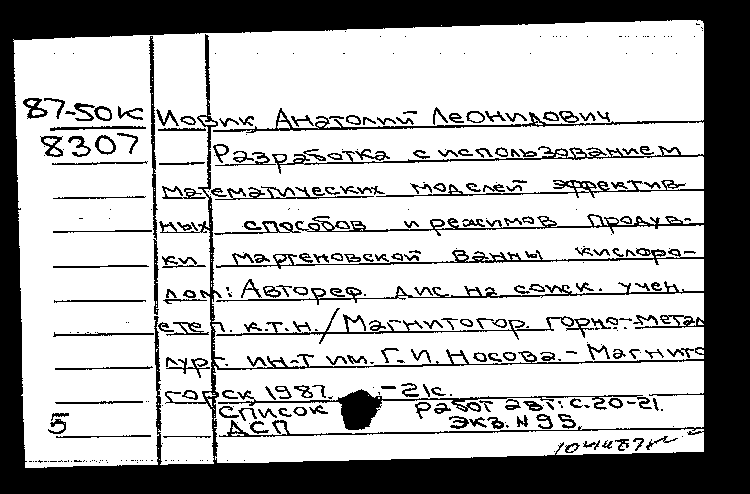 87-50к Иовик, Анатолий Леонидович
8307 Разработка с использованием
математических моделей эффектив-
ных способов и режимов продув-
ки мартеновской ванны кислоро-
дом: Автореф. дис. на соиск. учен.
степ. к.т.н./Магнитогор. горно-метал
лург. ин-т им. Г.И. Носова.- Магнито
горск, 1987. -21с.
Список работ авт: с.20-21.
5 АСП Экз. N 95.